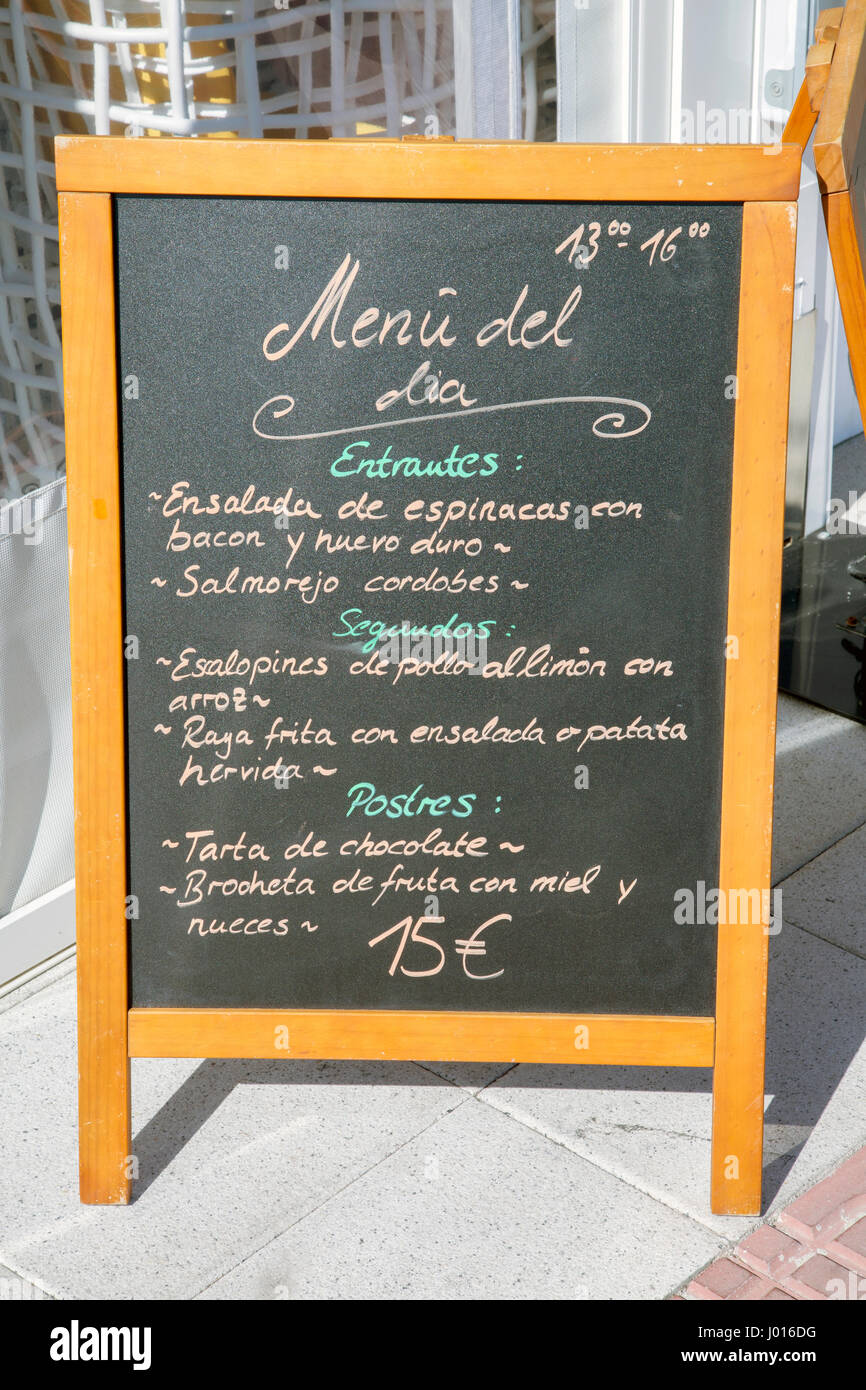 13⁰⁰-16⁰⁰
Menū del
dia
Entrantes :
~Ensalada de espinacas con
bacon y huevo duro~
~Salmorejo cordobes~
Segundos :
~Escalopines de pollo al limón con
arroz~
~Raya frita con ensalada o patata
hervida~
Postres :
~Tarta de chocolate~
~Brocheta de fruta con miel y
nueces~
15€
alamy
Image ID: J016DG
www.alamy.com